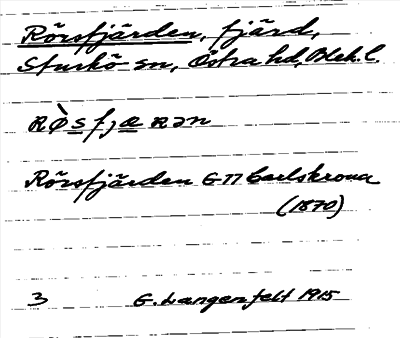 Rörsfjärden, fjärd,
Sturkö sn, Östra hd, Blek. l.
Rørsfjärden GTT Carlskrona
(1870)
3 G. Langenfelt 1915